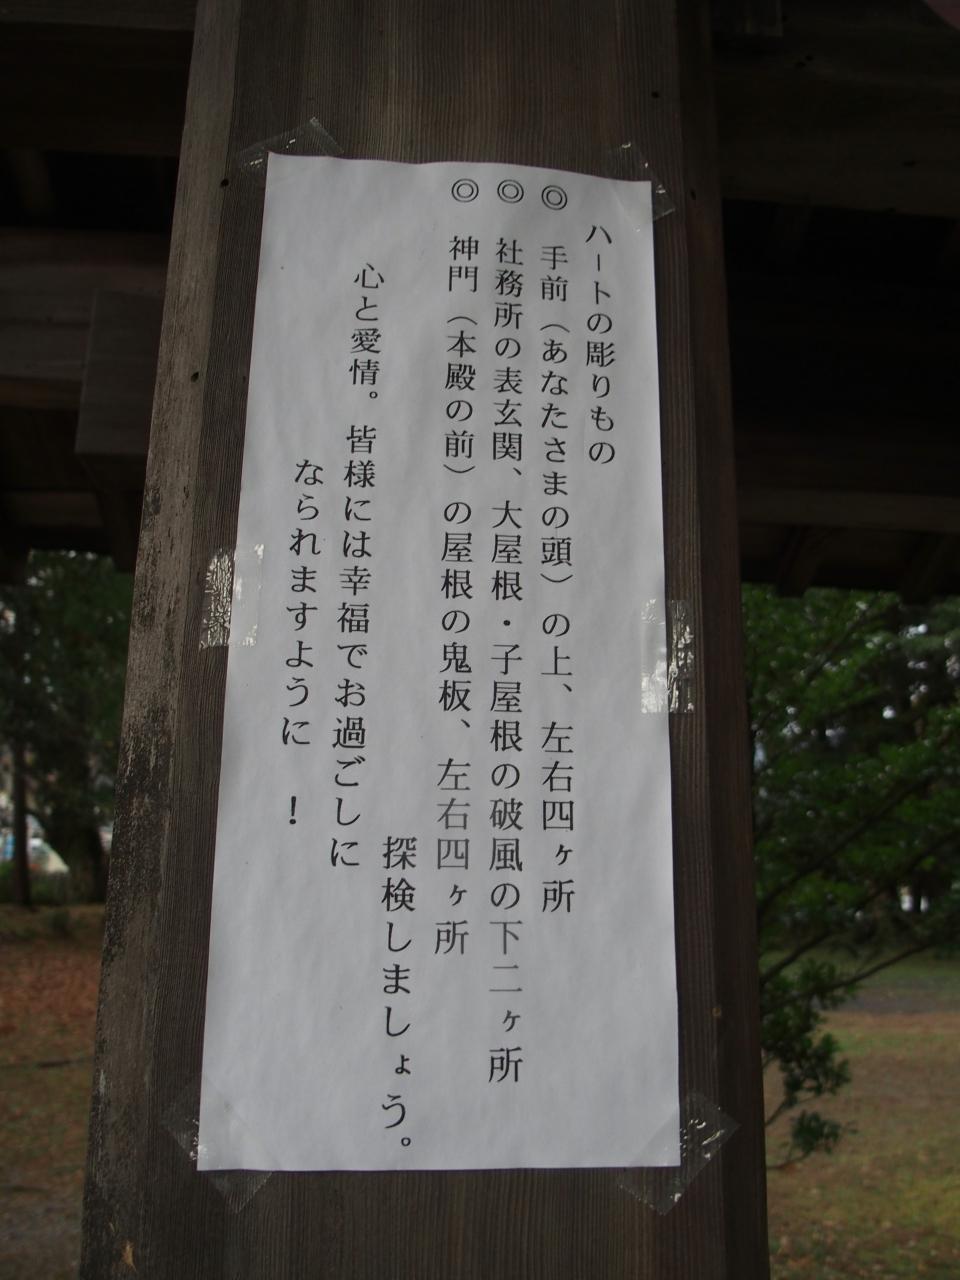 ハートの彫りもの
◎ 手前（あなたさまの頭）の上、左右四ヶ所
◎ 社務所の表玄関、大屋根・子屋根の破風の下二ヶ所
◎ 神門（本殿の前）の屋根の鬼板、左右四ヶ所
探検しましょう。
心と愛情。皆様には幸福でお過ごしに
なられますように！